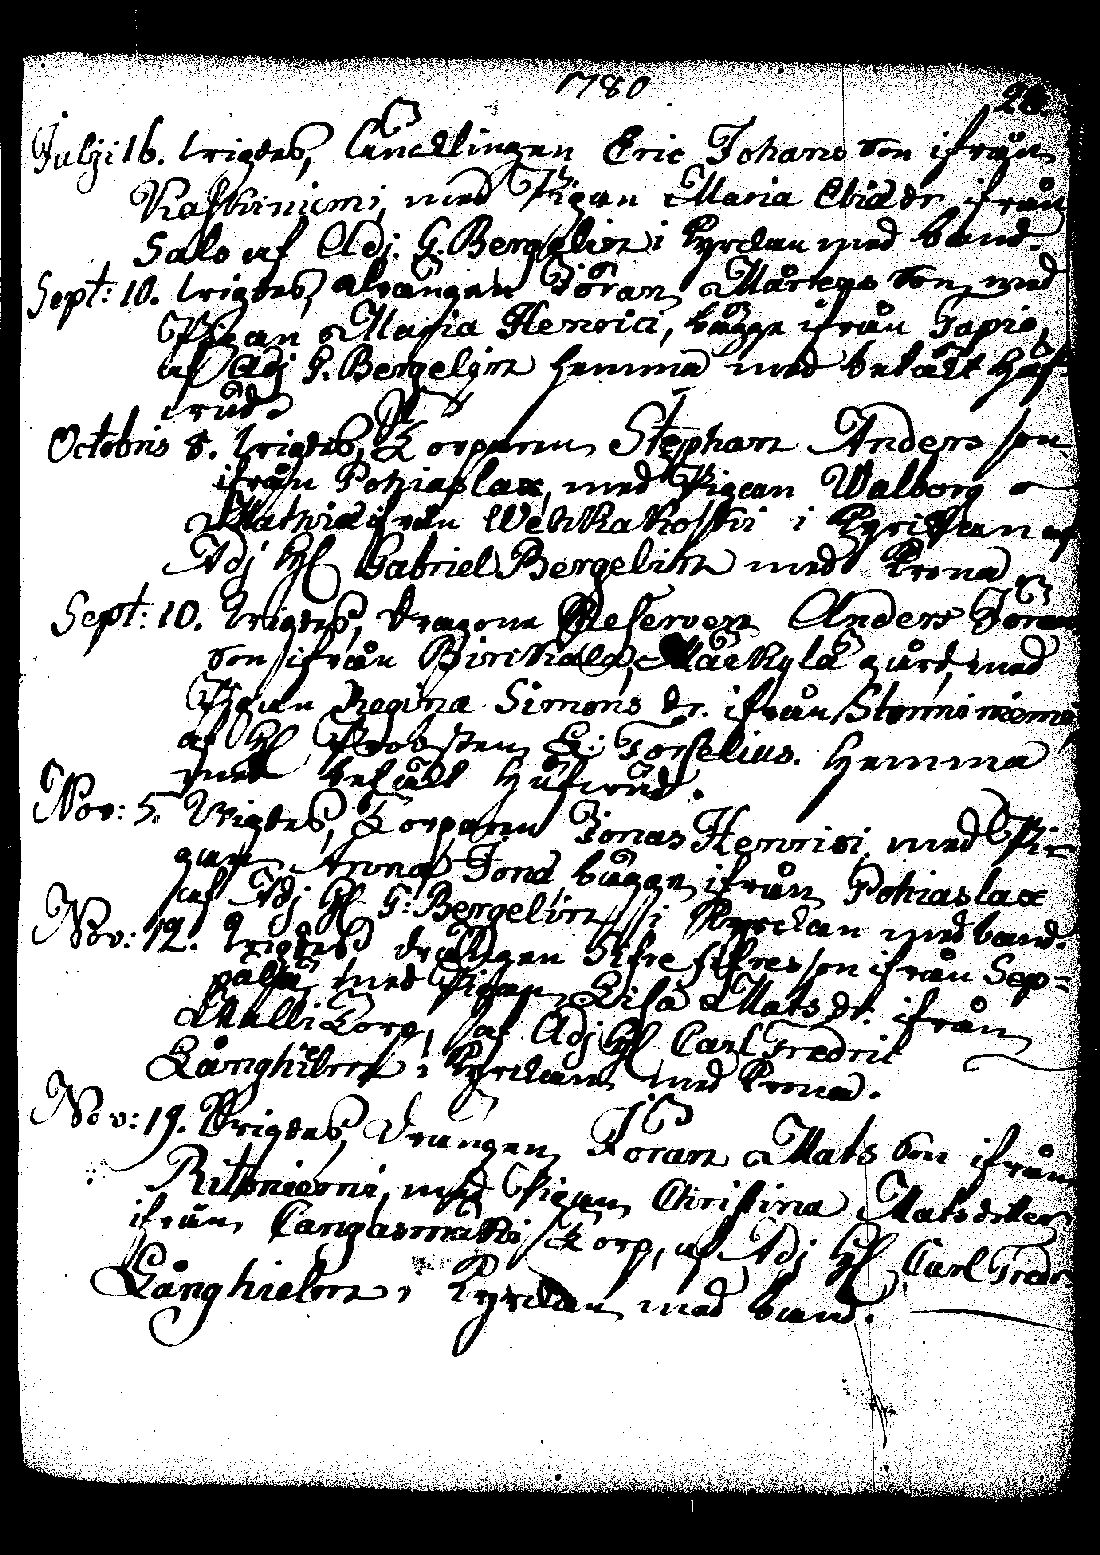 1780
28.
Julji 16. wigdes, Encklingen Eric Johans Son ifrån
Kaskiniemi, med Pigan Maria Eliæ dr ifrån
Salo af Adj. G. Bergelin i Kyrckan med band.
Sept: 10. wigdes, drängen Jöran Mårtens Son, med
Pigan Maria Henrici, bägge ifrån Tapio,
af Adj G. Bergelin hemma med betalt Huf-
wud.
Octobris 8. wigdes, Torparen Stephan Anders son
ifrån Pohiaslax, med Pigan Walborg
Mathiæ ifrån Wehkakoski i Kyrckan af
Adj H: Gabriel Bergelin med Krona
Sept: 10. wigdes, dragone Reserven Anders Jörans
Son ifrån Birkala, Mäckylä gård, med
Pigan Regina Simons dr. ifrån Storminiemi
af H: Probsten Torselius. hemma
med betalt Hufwud.
Nov: 5. wigdes, Torparen Jonas Henrici, med Pi-
gan Anna Jonæ, bägge ifrån Pohiaslax
af Adj H: G: Bergelin i Kyrckan med band.
Nov: 12. wigdes drängen son ifrån Sep-
pälä, med Pigan Lisa Mats dr. ifrån
Mulli Torp, af Adj H: Carl Fredric
Långhielm i Kyrckan med Krona.
Nov: 19. Wigdes, drängen Jöran Mats Son ifrån
Ritoniemi, med Pigan Christina Matsdotter
ifrån Cangasmäki Torp, af Adj H: Carl Fredr
Långhielm i Kyrckan med band.